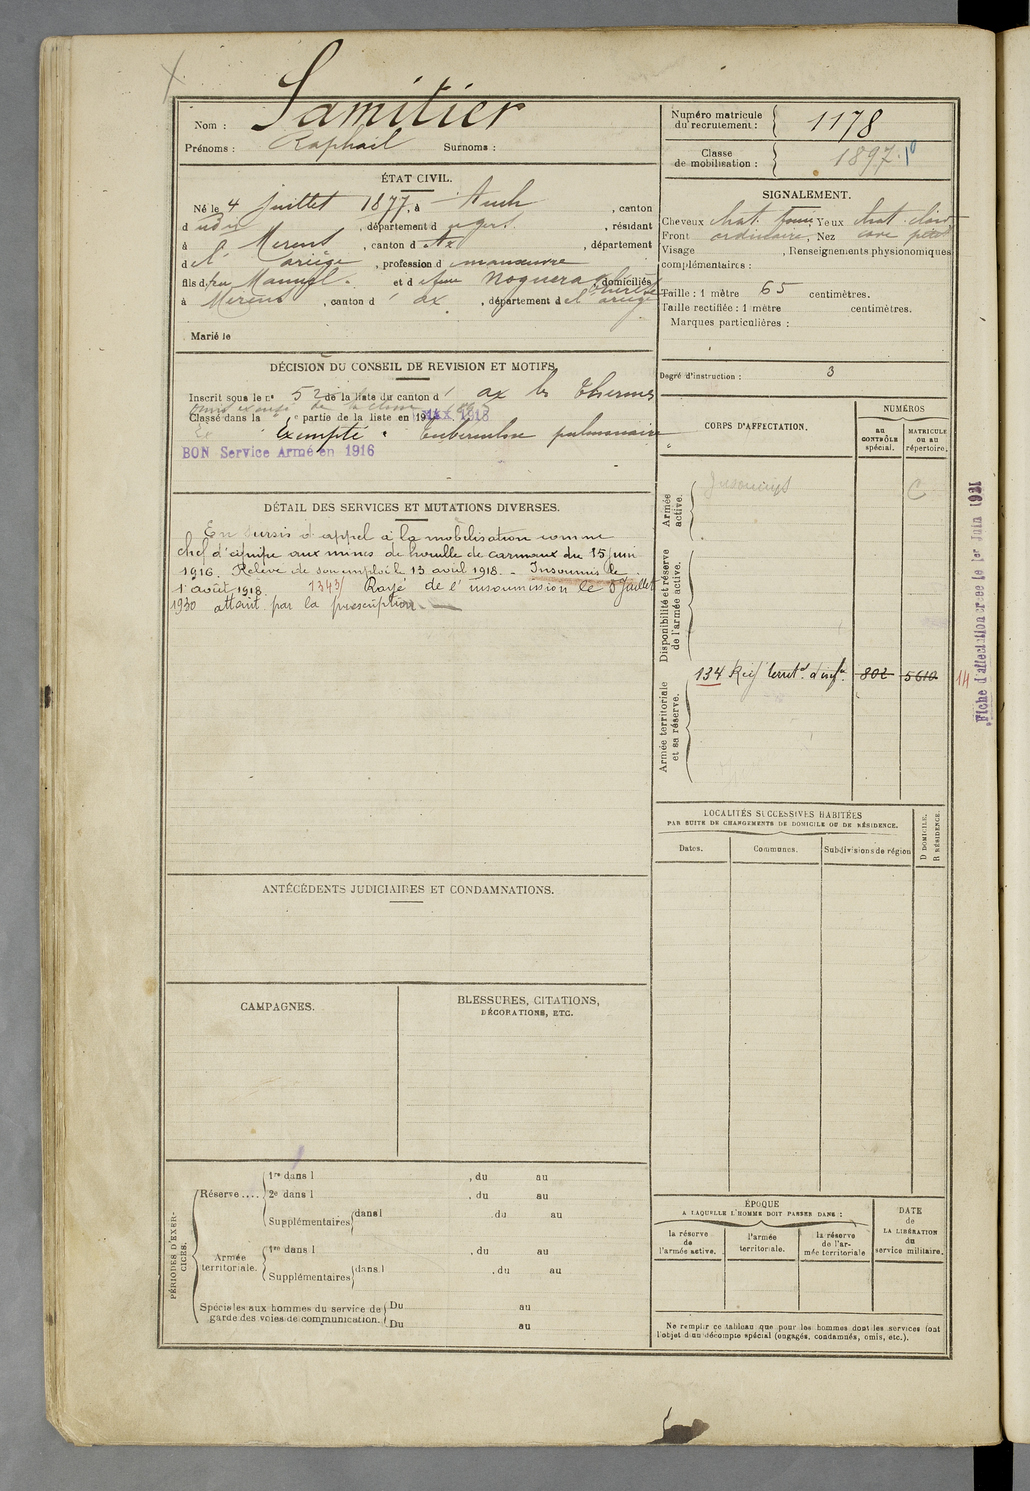 Nom : Samitier
Prénoms : Raphaël Surnoms :
Numéro matricule du recrutement : 1178
Classe de mobilisation : 1897
ÉTAT CIVIL.
Né le 4 Juillet 1877, à Auch, canton
d udit, département d u gers, résidant
à à Merens, canton d Ax, département
d e l' ariège, profession d manœuvre
fils de feu Manuel et de feue Noguera, domiciliés
à Merens, canton d' ax, département de l' ariège
Marié le
SIGNALEMENT.
Cheveux chat. foncé, Yeux chat. clair
Front ordinaire, Nez cave petit
Visage , Renseignements physionomiques
complémentaires :
Taille : 1 mètre 65 centimètres.
Taille rectifiée : 1 mètre centimètres.
Marques particulières :
Degré d'instruction : 3
DÉCISION DU CONSEIL DE REVISION ET MOTIFS.
Inscrit sous le n° 52 de la liste du canton d' ax les Thermes
Classé dans la partie de la liste en 191
Exempté Tuberculose pulmonaire
BON Service Armé en 1916
DÉTAIL DES SERVICES ET MUTATIONS DIVERSES.
En sursis d'appel à la mobilisation comme
chef d'équipe aux mines de houille de carmaux du 15 juin
1916. Relevé de son emploi le 13 avril 1918. - Insoumis le
1er août 1918. 1343/ Rayé de l'insoumission le 5 Juillet
1930 atteint par la prescription.
CORPS D'AFFECTATION.
NUMÉROS
au CONTRÔLE spécial.
MATRICULE ou au répertoire.
Armée active.
Insoumis
C
Disponibilité et réserve de l'armée active.
Armée territoriale et sa réserve.
134 Reg territal d'infie 802 5610
14
Fiche d'affectation créée le 1er Juin 1921
LOCALITÉS SUCCESSIVES HABITÉES
PAR SUITE DE CHANGEMENTS DE DOMICILE OU DE RÉSIDENCE.
Dates. Communes. Subdivisions de région
D DOMICILE.
R RÉSIDENCE.
ANTÉCÉDENTS JUDICIAIRES ET CONDAMNATIONS.
CAMPAGNES.
BLESSURES, CITATIONS,
DÉCORATIONS, ETC.
PÉRIODES D'EXERCICES.
Réserve....
1re dans l , du au
2e dans l , du au
Supplémentaires dans l , du au
Armée territoriale.
1re dans l , du au
Supplémentaires dans l , du au
Spéciales aux hommes du service de garde des voies de communication.
Du au
Du au
ÉPOQUE
A LAQUELLE L'HOMME DOIT PASSER DANS :
la réserve de l'armée active.
l'armée territoriale.
la réserve de l'armée territoriale
DATE
de
LA LIBÉRATION
du
service militaire.
Ne remplir ce tableau que pour les hommes dont les services font
l'objet d'un décompte spécial (engagés, condamnés, omis, etc.).